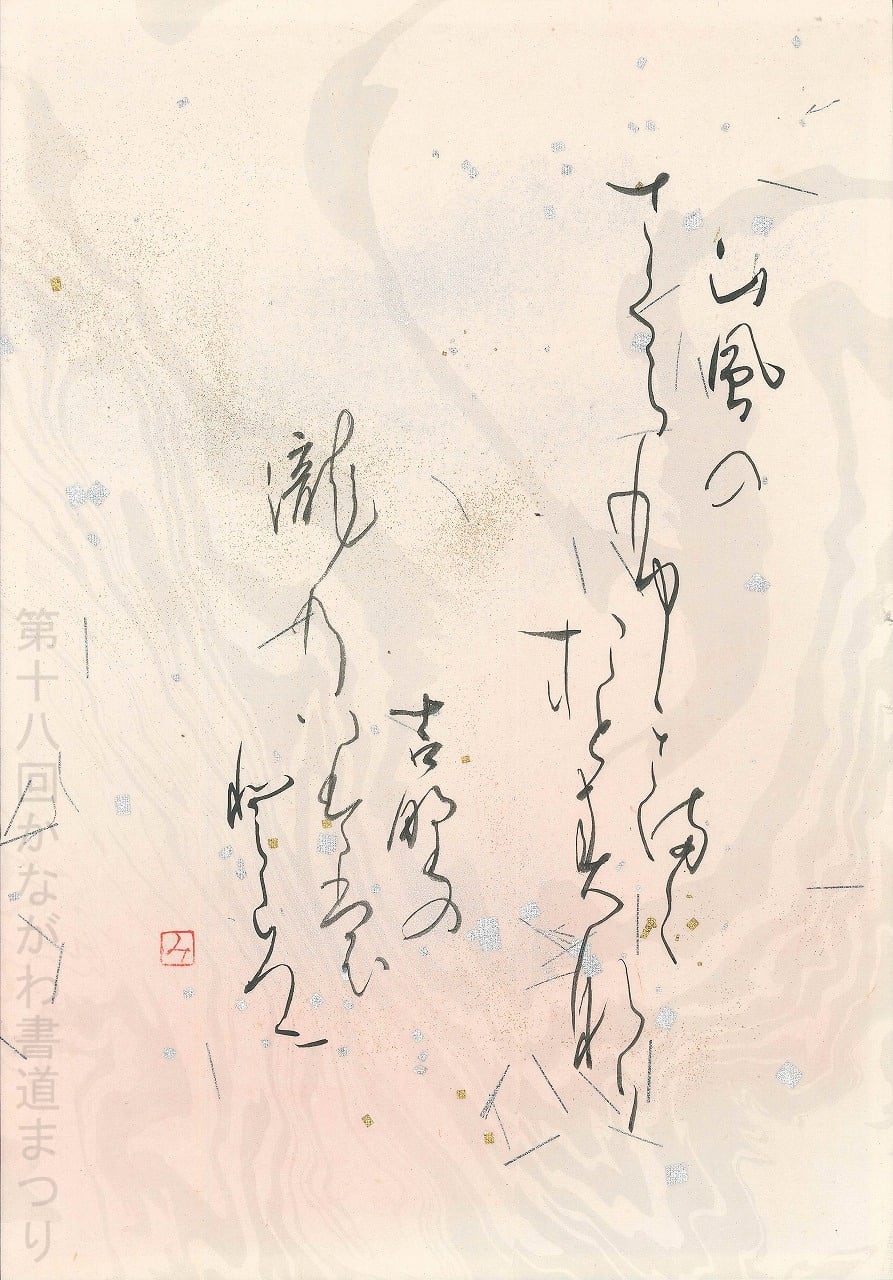 山風の
さくらふきまく
おとすなり
吉野の
瀧のいはも
とゞろに
み
第十八回かながわ書道まつり